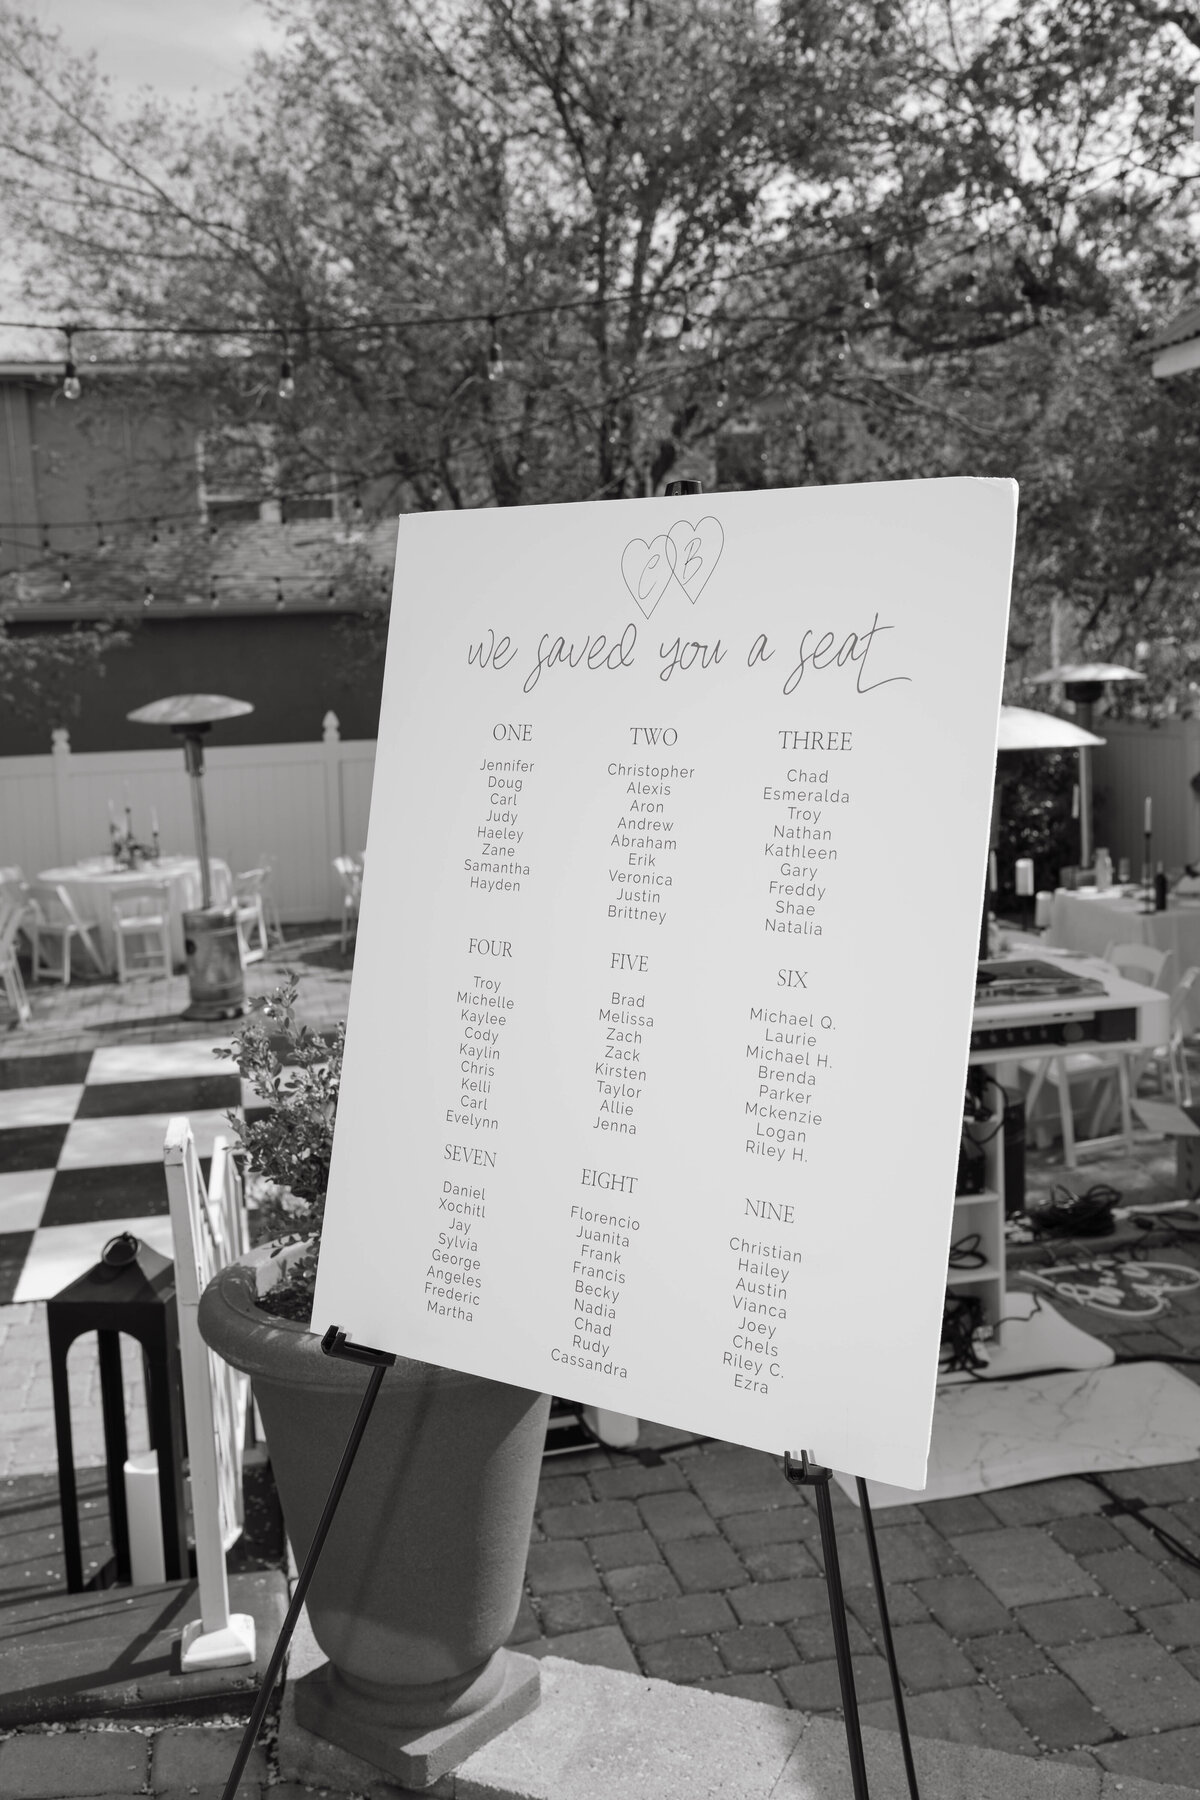 C B
we saved you a seat
ONE
Jennifer
Doug
Carl
Judy
Haeley
Zane
Samantha
Hayden
TWO
Christopher
Alexis
Aron
Andrew
Abraham
Erik
Veronica
Justin
Brittney
THREE
Chad
Esmeralda
Troy
Nathan
Kathleen
Gary
Freddy
Shae
Natalia
FOUR
Troy
Michelle
Kaylee
Cody
Kaylin
Chris
Kelli
Carl
Evelynn
FIVE
Brad
Melissa
Zach
Zack
Kirsten
Taylor
Allie
Jenna
SIX
Michael Q.
Laurie
Michael H.
Brenda
Parker
Mckenzie
Logan
Riley H.
SEVEN
Daniel
Xochitl
Jay
Sylvia
George
Angeles
Frederic
Martha
EIGHT
Florencio
Juanita
Frank
Francis
Becky
Nadia
Chad
Rudy
Cassandra
NINE
Christian
Hailey
Austin
Vianca
Joey
Chels
Riley C.
Ezra